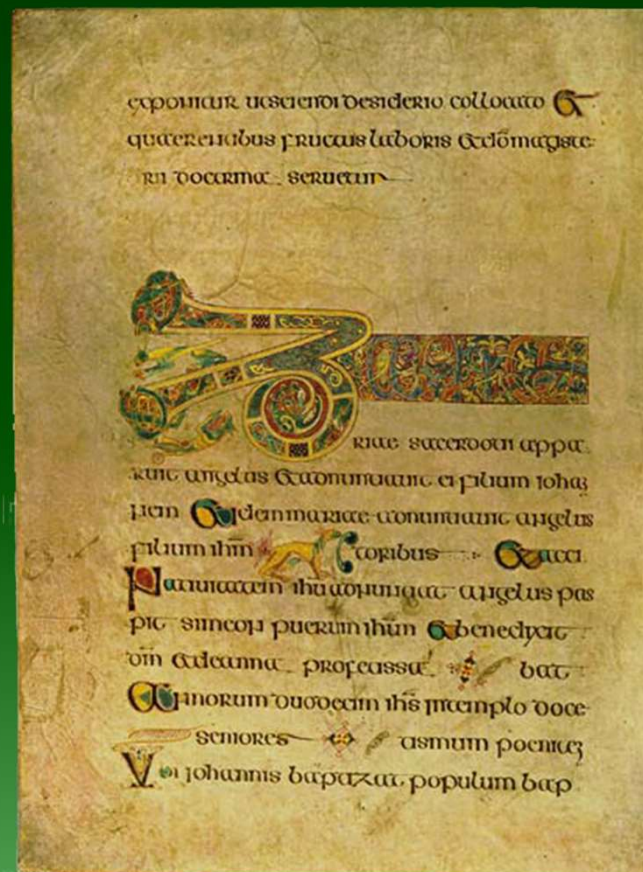 exponitur utsciendi desiderio collocato Et
quaerentibus fructus laboris &dōmagiste
rii doctrina seruetur
ZACHA
riae sacerdoti appa
ruit angelus &adnuntiauit ei filium iohan
nem Eidem mariae adnuntiauit angelus
filium ihm̄ toribus Et acci
Natiuitatem ihu adnuntiat angelus pas
pit simeon puerum ihm̄ &benedixit
dm̄ &deanna profetissa bat
Annorum duodecim ihs̄ intemplo doce
seniores tismum poeniten
Ubi iohannis baptizat populum bap